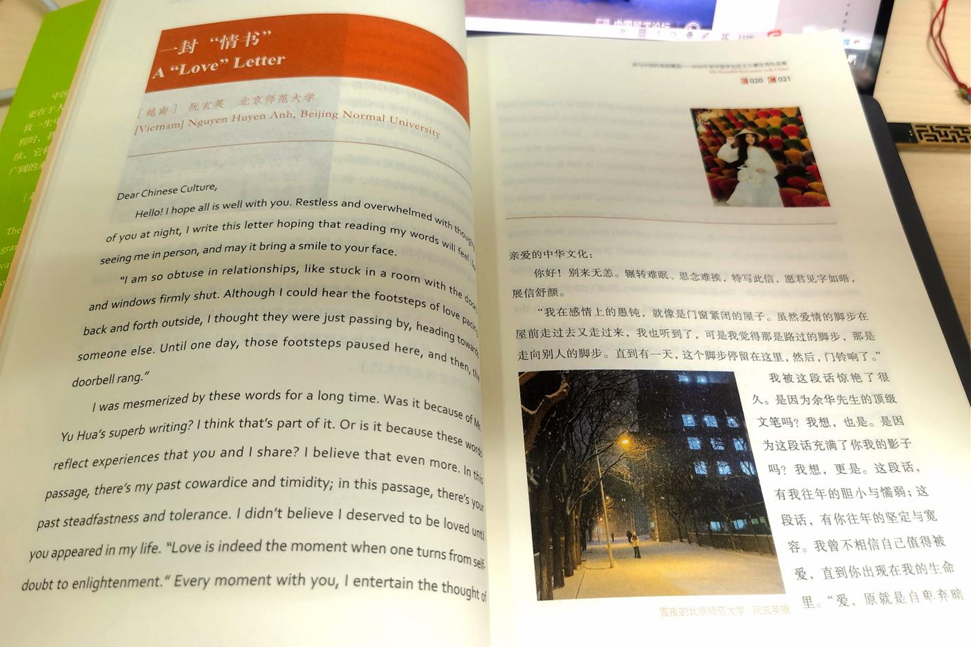 一封“情书”
A “Love” Letter
[越南] 阮玄英 北京师范大学
[Vietnam] Nguyen Huyen Anh, Beijing Normal University
Dear Chinese Culture,
Hello! I hope all is well with you. Restless and overwhelmed with
of you at night, I write this letter hoping that reading my words will feel
seeing me in person, and may it bring a smile to your face.
“I am so obtuse in relationships, like stuck in a room with the
and windows firmly shut. Although I could hear the footsteps of love pacing
back and forth outside, I thought they were just passing by, heading
someone else. Until one day, those footsteps paused here, and then, the
doorbell rang.”
I was mesmerized by these words for a long time. Was it because of
Yu Hua’s superb writing? I think that’s part of it. Or is it because these words
reflect experiences that you and I share? I believe that even more. In this
passage, there’s my past cowardice and timidity; in this passage, there’s your
past steadfastness and tolerance. I didn’t believe I deserved to be loved until
you appeared in my life. “Love is indeed the moment when one turns from self-
doubt to enlightenment.” Every moment with you, I entertain the thought of
020 021
亲爱的中华文化：
你好！别来无恙。辗转难眠、思念难挨，特写此信，愿君见字如晤，
展信舒颜。
“我在感情上的愚钝，就像是门窗紧闭的屋子。虽然爱情的脚步在
屋前走过去又走过来，我也听到了，可是我觉得那是路过的脚步，那是
走向别人的脚步。直到有一天，这个脚步停留在这里，然后，门铃响了。”
我被这段话惊艳了很
久。是因为余华先生的顶级
文笔吗？我想，也是。是因
为这段话充满了你我的影子
吗？我想，更是。这段话，
有我往年的胆小与懦弱；这
段话，有你往年的坚定与宽
容。我曾不相信自己值得被
爱，直到你出现在我的生命
里。“爱，原就是自卑弃暗
雪夜的北京师范大学